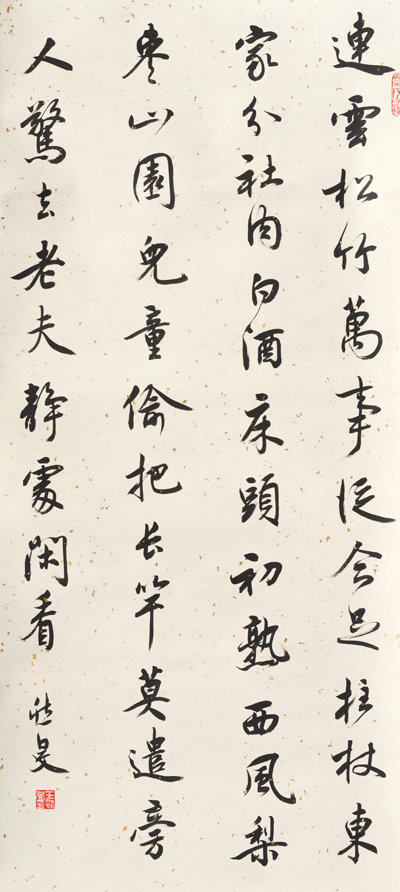 連雲松竹萬事從今足拄杖東
家分社肉白酒床頭初熟西風梨
棗山園兒童偷把长竿莫遣旁
人驚去老夫靜處閑看